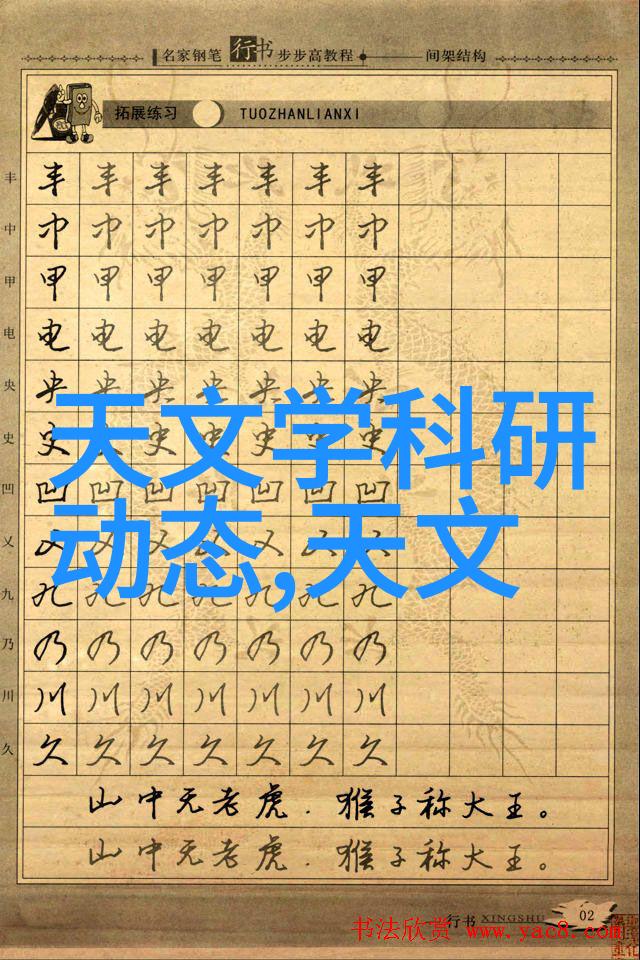 名家钢笔行书步步高教程 间架结构
拓展练习 TUOZHANLIANXI
丰 丰 丰 丰 丰 丰 丰 丰
中 中 中 中 中 中 中 中
甲 甲 甲 甲 甲 甲 甲 甲
电 电 电 电 电 电 电 电
央 央 央 央 央 央 央 央
史 史 史 史 史 史 史 史
天文学科研
凹 凹 凹 凹 凹 凹 凹 凹
动态,天文
乂 乂 乂 乂 乂 乂 乂 乂
九 九 九 九 九 九 九 九
乃 乃 乃 乃 乃 乃 乃 乃
川 川 川 川 川 川 川 川
久 久 久 久 久 久 久 久
山中无老虎.猴子称大王。
山中无老虎.猴子称大王。
行书 XINGSHU 02
书法欣赏 www.yac8.com